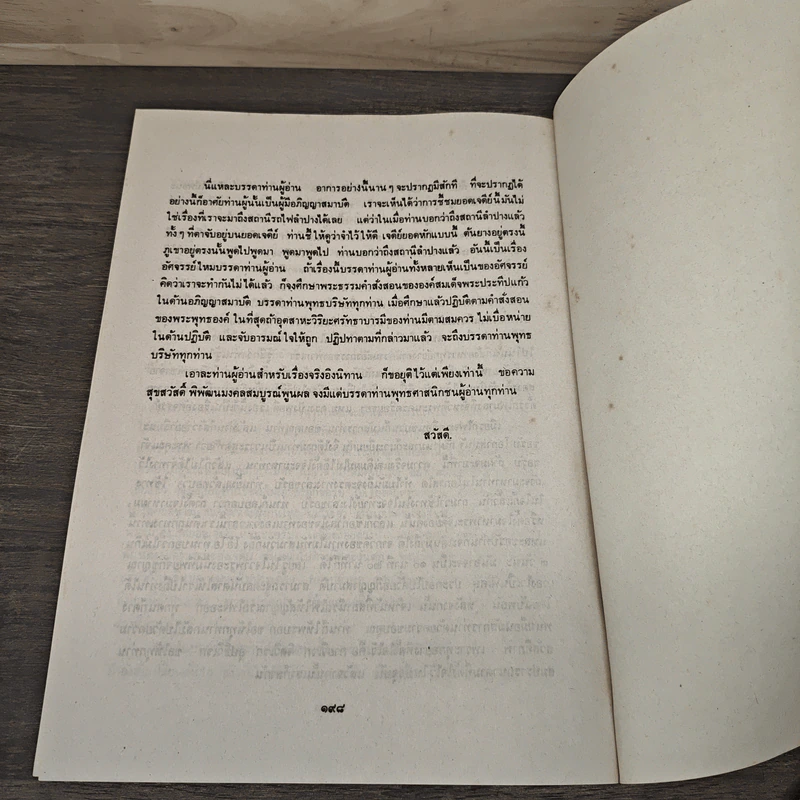 นี่แหละบรรดาท่านผู้อ่าน อาการอย่างนี้นาน ๆ จะปรากฏมีสักที ที่จะปรากฏได้
อย่างนี้ก็อาศัยท่านผู้นั้นเป็นผู้มีอภิญญาสมาบัติ เราจะเห็นได้ว่าการชี้ชมยอดเจดีย์นี้มันไม่
ใช่เรื่องที่เราจะมาถึงสถานีรถไฟลำปางได้เลย แต่ว่าในเมื่อท่านบอกว่าถึงสถานีลำปางแล้ว
ทั้ง ๆ ที่ตาจับอยู่บนยอดเจดีย์ ท่านชี้ ให้ดูว่าจำไว้ให้ดี เจดีย์ยอดหักแบบนี้ ต้นยางอยู่ตรงนี้
ภูเขาอยู่ตรงนั้นพูดไปพูดมา พูดมาพูดไป ท่านบอกว่าถึงสถานีลำปางแล้ว อันนี้เป็นเรื่อง
อัศจรรย์ไหมบรรดาท่านผู้อ่าน ถ้าเรื่องนี้บรรดาท่านผู้อ่านทั้งหลายเห็นเป็นของอัศจรรย์
คิดว่าเราจะทำกันไม่ได้แล้ว ก็จงศึกษาพระธรรมคำสั่งสอนขององค์สมเด็จพระประทีปแก้ว
ในด้านอภิญญาสมาบัติ บรรดาท่านพุทธบริษัททุกท่าน เมื่อศึกษาแล้วปฏิบัติตามคำสั่งสอน
ของพระพุทธองค์ ในที่สุดถ้าอุตสาหะวิริยะศรัทธาบารมีของท่านมีตามสมควร ไม่เบื่อหน่าย
ในด้านปฏิบัติ และจับอารมณ์ใจให้ถูก ปฏิปทาตามที่กล่าวมาแล้ว จะถึงบรรดาท่านพุทธ
บริษัททุกท่าน
เอาละท่านผู้อ่านสำหรับเรื่องจริงอิงนิทาน ก็ขอยุติไว้แต่เพียงเท่านี้ ขอความ
สุขสวัสดิ์ พิพัฒนมงคลสมบูรณ์พูนผล จงมีแด่บรรดาท่านพุทธศาสนิกชนผู้อ่านทุกท่าน
สวัสดี.
๑๙๘